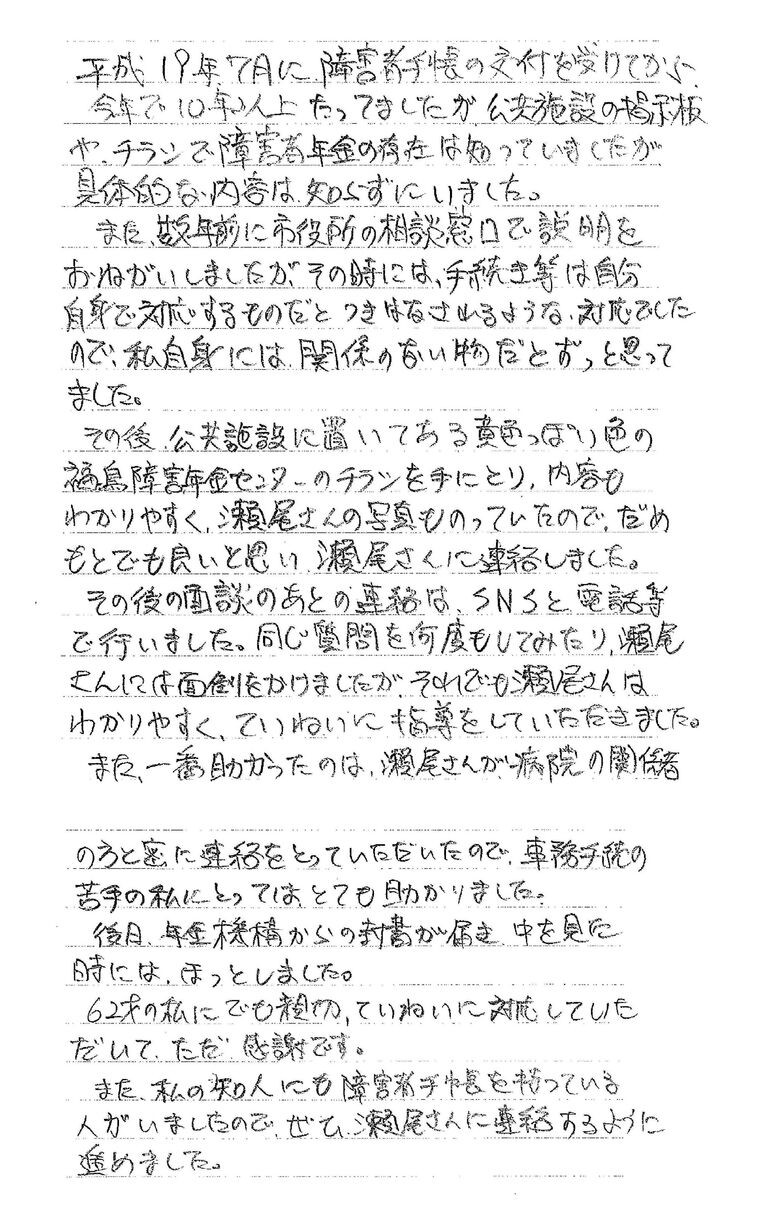 平成19年7月に障害者手帳の交付を受けてから、
今年で10年以上たってましたが公共施設の掲示板
や、チラシで障害者年金の存在は知っていましたが
具体的な内容は知らずにいました。
また、数年前に市役所の相談窓口で説明を
おねがいしましたが、その時には、手続き等は自分
自身で対応するものだとつきはなされるような、対応でした
ので、私自身には関係のない物だとずっと思って
ました。
その後、公共施設に置いてある黄色っぽい色の
福島障害年金センターのチラシを手にとり、内容も
わかりやすく、瀬尾さんの写真ものっていたので、だめ
もとでも良いと思い、瀬尾さんに連絡しました。
その後の面談のあとの連絡は、SNSと電話等
で行いました。同じ質問を何度もしてみたり、瀬尾
さんには面倒をかけましたが、それでも瀬尾さんは
わかりやすく、ていねいに指導をしていただきました。
また、一番助かったのは、瀬尾さんが、病院の関係者
の方と密に連絡をとっていただいたので、事務手続の
苦手の私にとっては、とても助かりました。
後日、年金機構からの封書が届き中を見た
時には、ほっとしました。
62才の私にでも親切、ていねいに対応していた
だいて、ただ感謝です。
また、私の知人にも障害者手帳を持っている
人がいましたので、ぜひ、瀬尾さんに連絡するように
進めました。